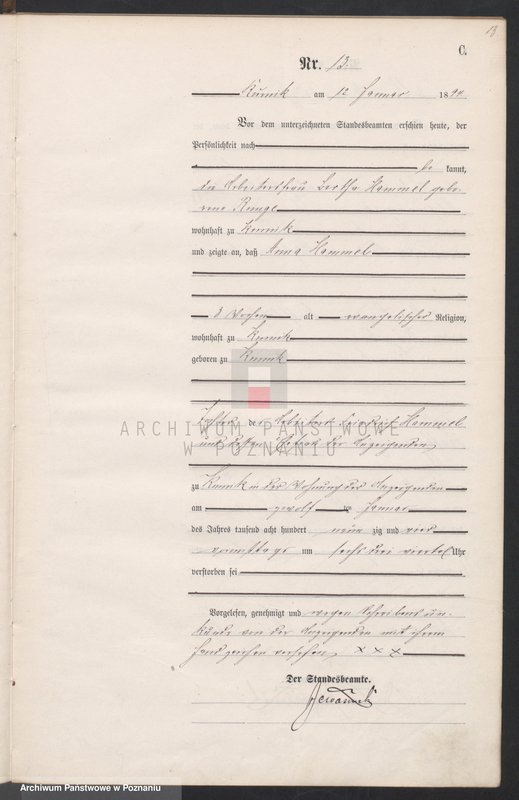 13
C.
Nr. 13.
Kurnik am 12 Januar 1894
Vor dem unterzeichneten Standesbeamten erschien heute, der
Persönlichkeit nach
be kannt,
die Arbeiterfrau Bertha Hammel gebo-
rene Runge
wohnhaft zu Kurnik
und zeigte an, daß Anna Hammel
3 Wochen alt evangelischer Religion,
wohnhaft zu Kurnik
geboren zu Kurnik
Tochter des Arbeiters Friedrich Hammel
und dessen Ehefrau der Anzeigenden
ARCHIWUM PAŃSTWOWE
W POZNANIU
zu Kurnik in der Wohnung der Anzeigenden
am zwölf ten Januar
des Jahres tausend acht hundert neun zig und vier
um sechs drei viertel Uhr
verstorben sei
Vorgelesen, genehmigt und wegen Schreibensun-
kunde von der Anzeigenden mit ihrem
Handzeichen versehen x x x
Der Standesbeamte.
Archiwum Panstwowe w Poznaniu